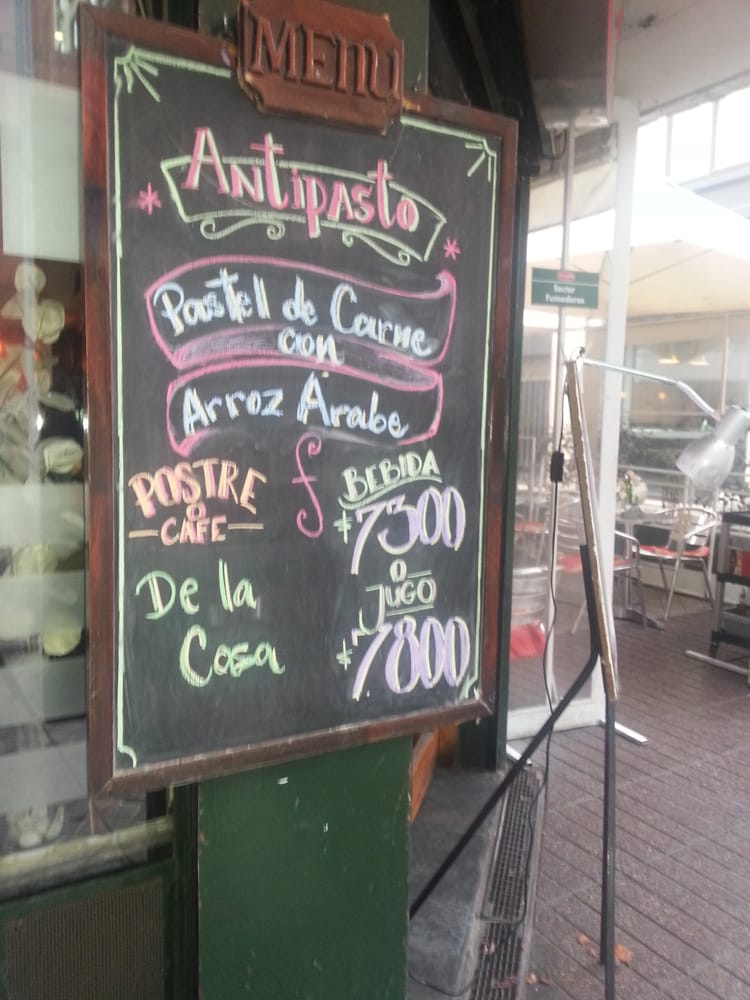 MENU
Antipasto
Pastel de Carne
con
Arroz Árabe
POSTRE
O
CAFE
BEBIDA
$7300
O
JUGO
$7800
De la
Casa
Sector
Fumadores